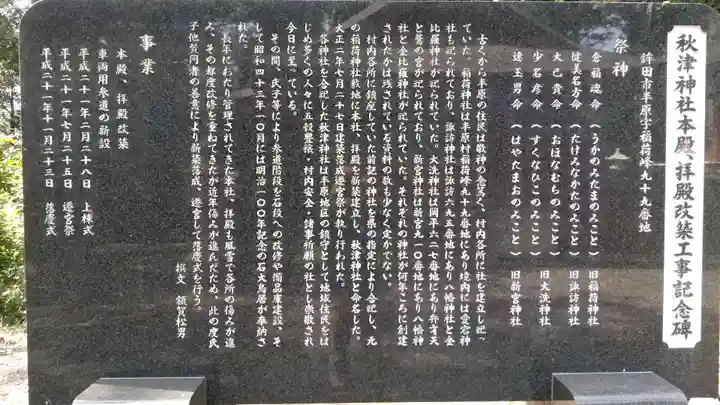 秋津神社本殿、拝殿改築工事記念碑
鉾田市半原字稲荷峰九十九番地
祭神
倉稲魂命 (うかのみたまのみこと) 旧稲荷神社
健美名方命 (たけみなかたのみこと) 旧諏訪神社
大己貴命 (おほなむちのみこと) 旧大洗神社
少名彦命 (すくなひこのみこと)
速玉男命 (はやたまおのみこと) 旧新宮神社
古くから半原の住民は敬神の念深く、村内各所に社を建立し祀っ
ていた。稲荷神社は半原村稲荷峰九十九番地にあり境内には愛宕神
社も祀られており、諏訪神社は諏訪六九五番地にあり八幡神社と金
比羅神社が祀られていた。大洗神社は岡平六二七番地にあり弁才天
と鷲の宮が祀られており、新宮神社は新宮九一〇番地にあり八幡神
社と金比羅神社が祀られていた。それぞれの神社が何年ころに創建
されたかは残されている資料の数も少なく定かでない。
村内各所に鎮座していた前記の神社を県の指定により合祀し、元
の稲荷神社敷地に本社、拝殿を新築建立し、秋津神社と命名した。
大正二年七月二十七日建築落成遷宮祭が執り行われた。
各神社を合祀した秋津神社は半原地区の鎮守として地域住民をは
じめ多くの人々に五穀豊穣・村内安全・諸事祈願の社とし崇敬され
今日に至っている。
その間、氏子等により参道階段を石段への改修や備品庫建設、そ
して昭和四十三年一〇月には明治一〇〇年記念の石大鳥居が奉納さ
れた。
長年にわたり管理されてきた本社、拝殿も風雪で各所の傷みが進
み、その都度改修を重ねてきたが近年傷みが進んだため、此の度氏
子他賛同者の善意により新築落成、遷宮して落慶式を行う。
撰文 額賀松男
事業
本殿、拝殿改築
車両用参道の新設
平成二十一年二月二十八日 上棟式
平成二十一年七月二十五日 遷宮祭
平成二十一年十一月二十三日 落慶式